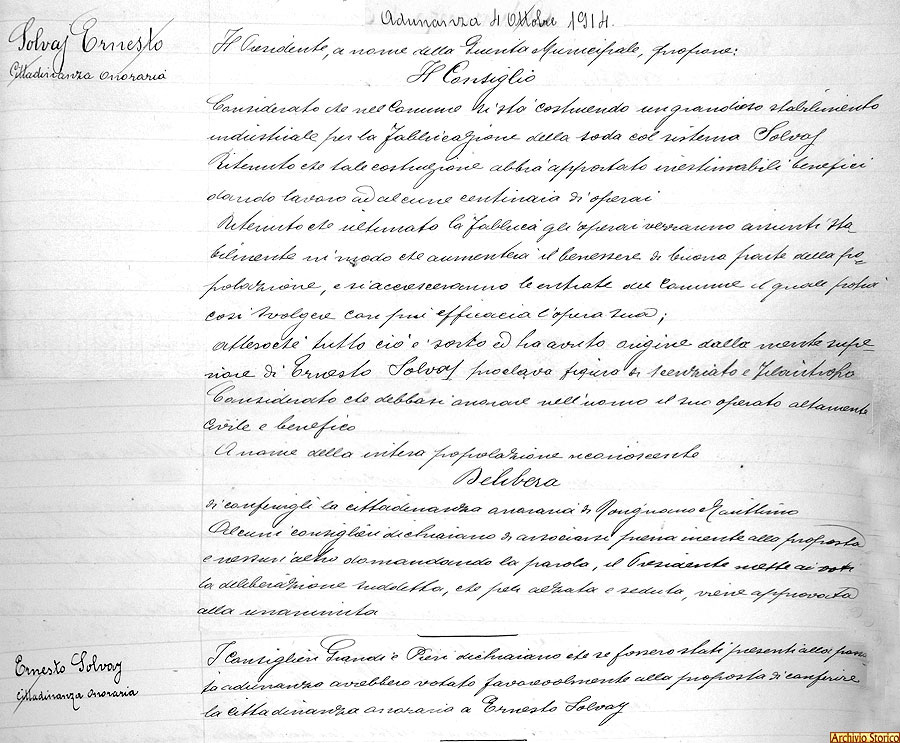 Adunanza 4 Ottobre 1914.
Solvay Ernesto
Cittadinanza onoraria
Il Presidente, a nome della Giunta Municipale, propone:
Il Consiglio
Considerato che nel Comune si sta costruendo un grandioso stabilimento
industriale per la fabbricazione della soda col sistema Solvay
Ritenuto che tale costruzione abbia apportato inestimabili benefici
dando lavoro ad alcune centinaia di operai
Ritenuto che ultimato la fabbrica gli operai verranno assunti sta
bilmente in modo che aumenterà il benessere di buona parte della po-
polazione, e si accresceranno le entrate del Comune il quale potrà
così svolgere con più efficacia l'opera sua;
attesochè tutto ciò è sorto ed ha avuto origine dalla mente supe-
riore di Ernesto Solvay proclara figura di scienziato e filantropo
Considerato che debbasi onorare nell'uomo il suo operato altamente
civile e benefico
A nome della intera popolazione riconoscente
Delibera
di conferirgli la cittadinanza onoraria di Rosignano Marittimo
Alcuni consiglieri dichiarano di associarsi pienamente alla proposta
e nessun altro domandando la parola, il Presidente mette ai voti
la deliberazione suddetta, che per alzata e seduta, viene approvata
alla unanimita
Ernesto Solvay
Cittadinanza onoraria
I Consiglieri Grandi e Pieri dichiarano che se fossero stati presenti alla passa-
ta adunanza avrebbero votato favorevolmente alla proposta di conferire
la cittadinanza onoraria a Ernesto Solvay
Archivio Storico